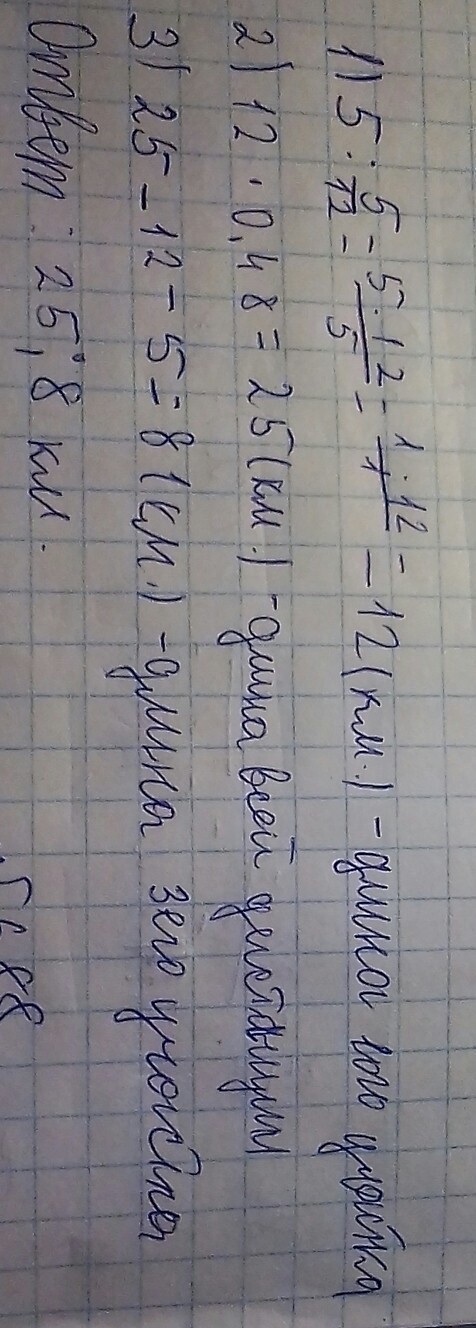 1) 5 : 5/12 = 5·12/5 = 1·12/1 =
= 12 (км.) - длина 1ого участка
2) 12 · 0,48 = 25 (км.) - длина всей дистанции
3) 25 - 12 - 5 = 8 (км.) - длина 3его участка
Ответ: 25; 8 км.